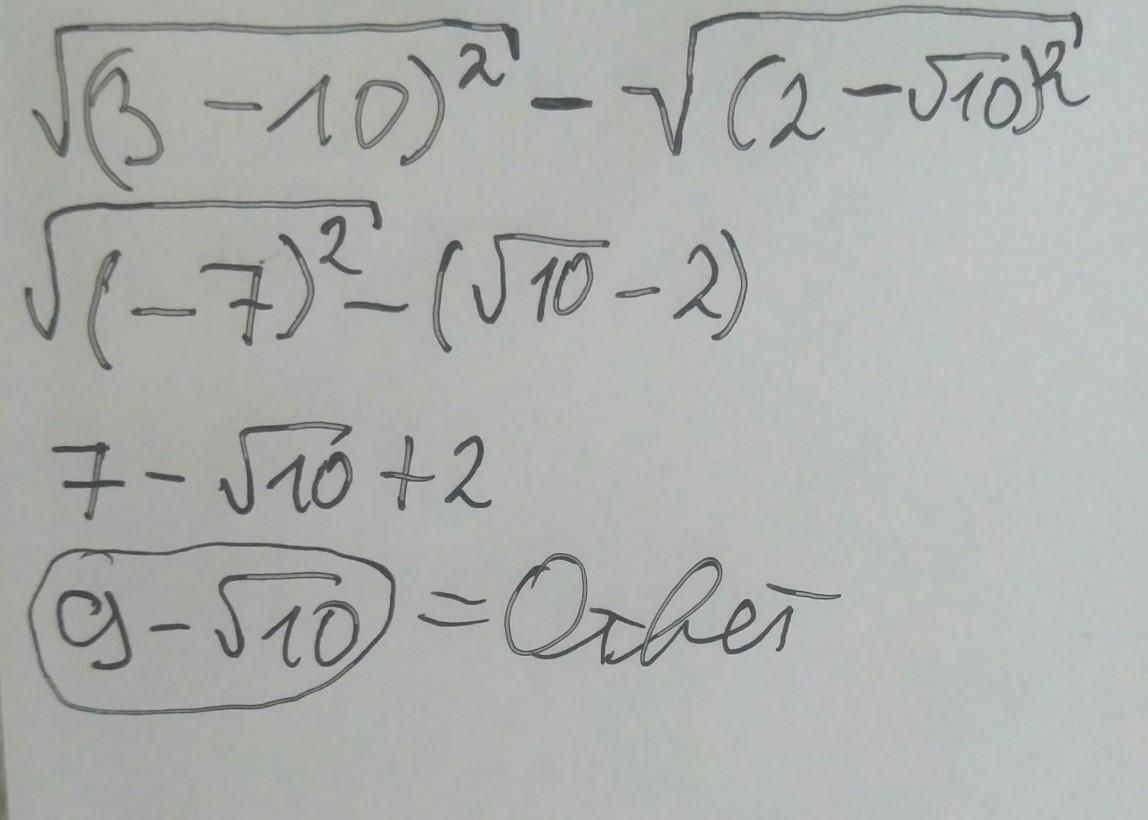 √(3 - 10)² - √(2 - √10)²
√(-7)² - (√10 - 2)
7 - √10 + 2
9 - √10 = Ответ